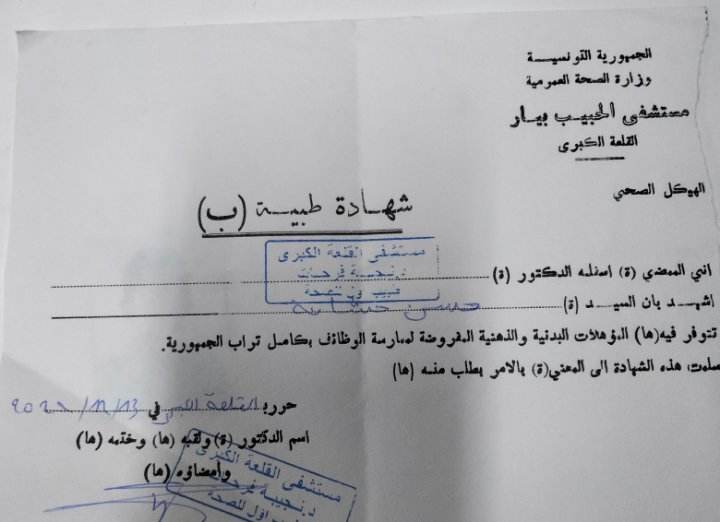 الجمهورية التونسية
وزارة الصحة العمومية
مستشفى الحبيب بيار
القلعة الكبرى
الهيكل الصحي
شهادة طبية (ب)
مستشفى القلعة الكبرى
اني الممضي (ة) اسفله الدكتور (ة)
اشهد بان السيد (ة) حسن
تتوفر فيه(ها) المؤهلات البدنية والذهنية المفروضة لممارسة الوظائف بكامل تراب الجمهورية.
سلمت هذه الشهادة الى المعني(ة) بالامر بطلب منه (ها)
حرر بـ القلعة الكبرى في
اسم الدكتور (ة) ولقبه (ها) وختمه (ها)
وامضاؤه (ها)
مستشفى القلعة الكبرى